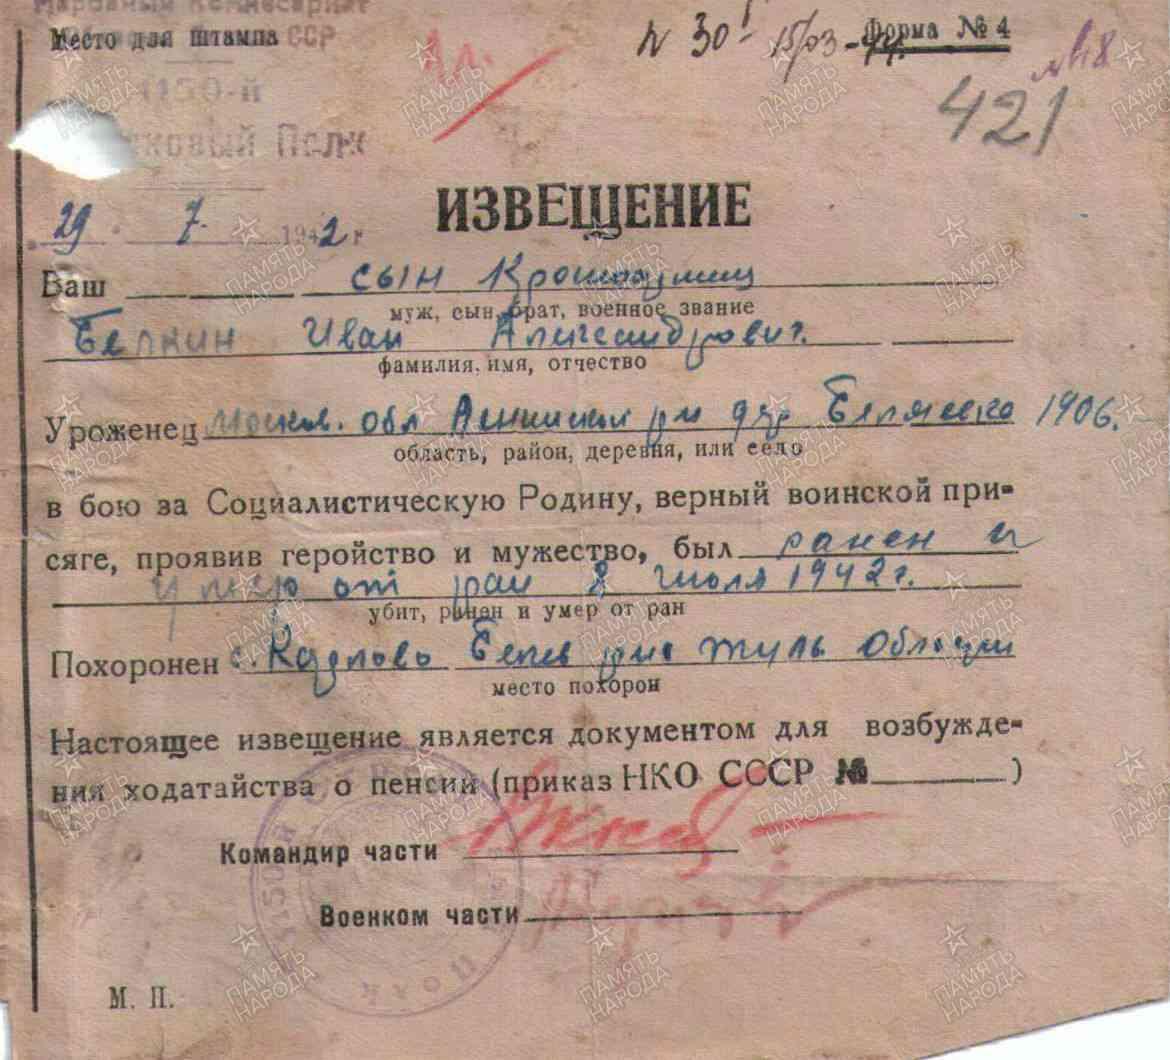 Народный Комиссариат
Место для штампа СССР
1150-й
Полк
Форма № 4
N 30 15/03-44.
421
ИЗВЕЩЕНИЕ
29 7. 1942 г
Ваш сын Красноармеец
муж, сын, брат, военное звание
Белкин Иван Александрович.
фамилия, имя, отчество
Уроженец Москов. обл Ленинский р-н дер 1906.
область, район, деревня, или село
в бою за Социалистическую Родину, верный воинской при-
сяге, проявив геройство и мужество, был ранен и
умер от ран 8 июля 1942 г.
убит, ранен и умер от ран
Похоронен с. Белев Туль области
место похорон
Настоящее извещение является документом для возбужде-
ния ходатайства о пенсии (приказ НКО СССР № )
Командир части
Военком части
М. П.
ПАМЯТЬ НАРОДА